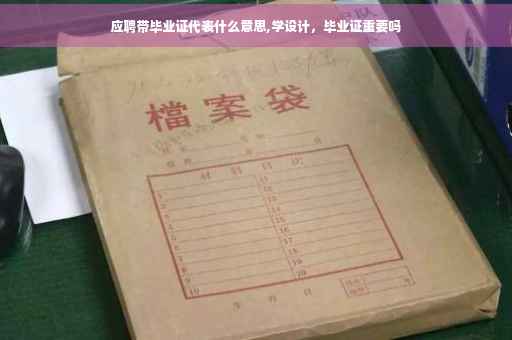 应聘带毕业证代表什么意思,学设计，毕业证重要吗
檔案袋
材料目次
1 11
2 12
3 13
4 14
5 15
6 16
7 17
8 18
9 19
10 20
年 月 日